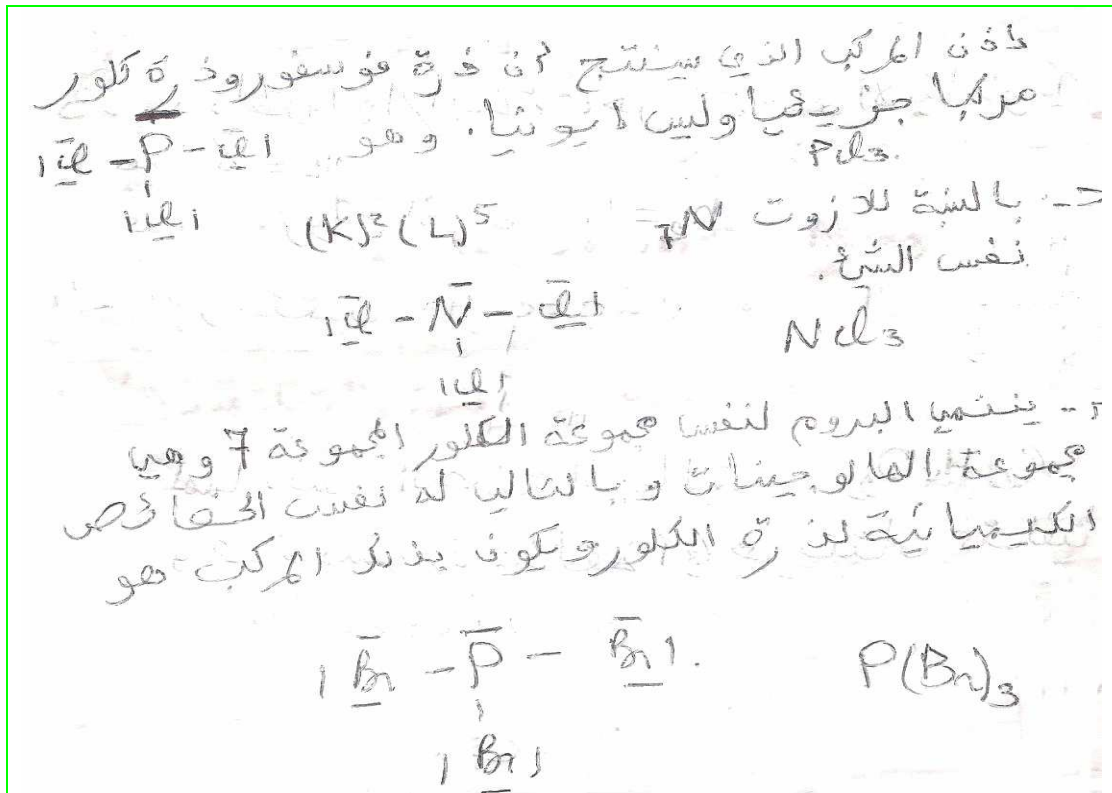 اذن المركب الذي سينتج من ذرة فوسفور وذرة كلور
مركبا جزيئيا وليس ايونيا. وهو PCl₃.
|C̅l̲ - P̅ - C̅l̲|
|C̲l|
- بالنسبة للازوت ₇N (K)² (L)⁵
نفس الشئ.
NCl₃ |C̅l̲ - N̅ - C̅l̲|
|C̲l|
- ينتمي البروم لنفس مجموعة الكلور المجموعة 7 وهي
مجموعة الهالوجينات وبالتالي له نفس الخصائص
الكيميائية لذرة الكلور ويكون بذلك المركب هو
P(Br)₃ |B̅r̲ - P̅ - B̅r̲|.
|B̲r|